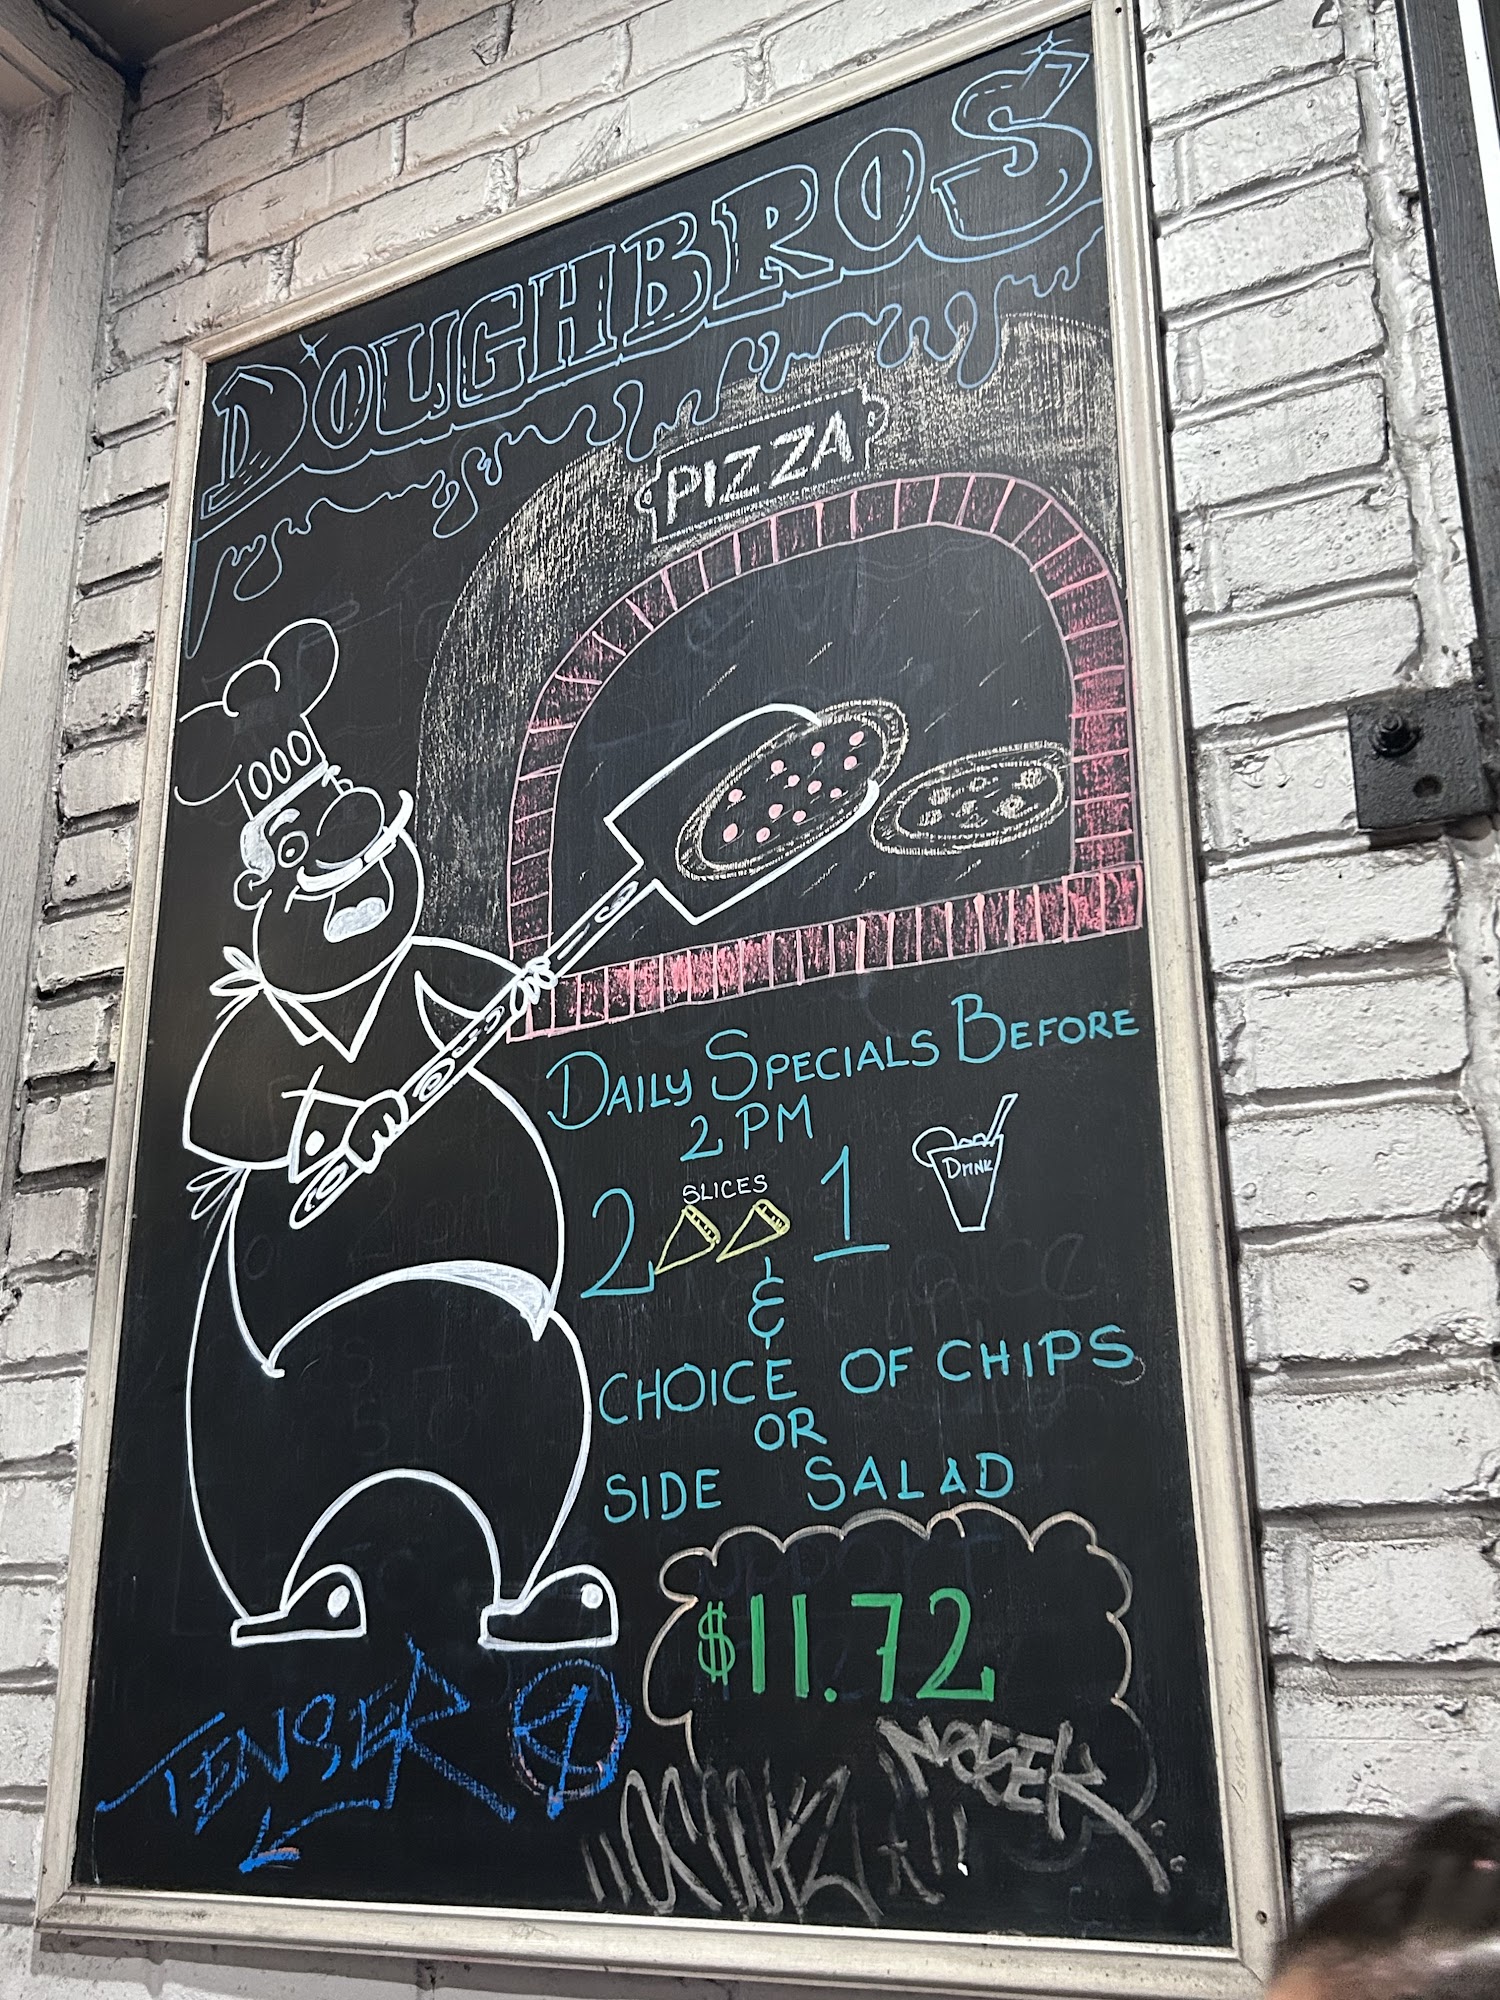 DOUGHBROS
PIZZA
1000
DAILY SPECIALS BEFORE
2 PM
SLICES
2 1
DRINK
&
CHOICE OF CHIPS
OR
SIDE SALAD
$11.72
TENSER
NOSEK